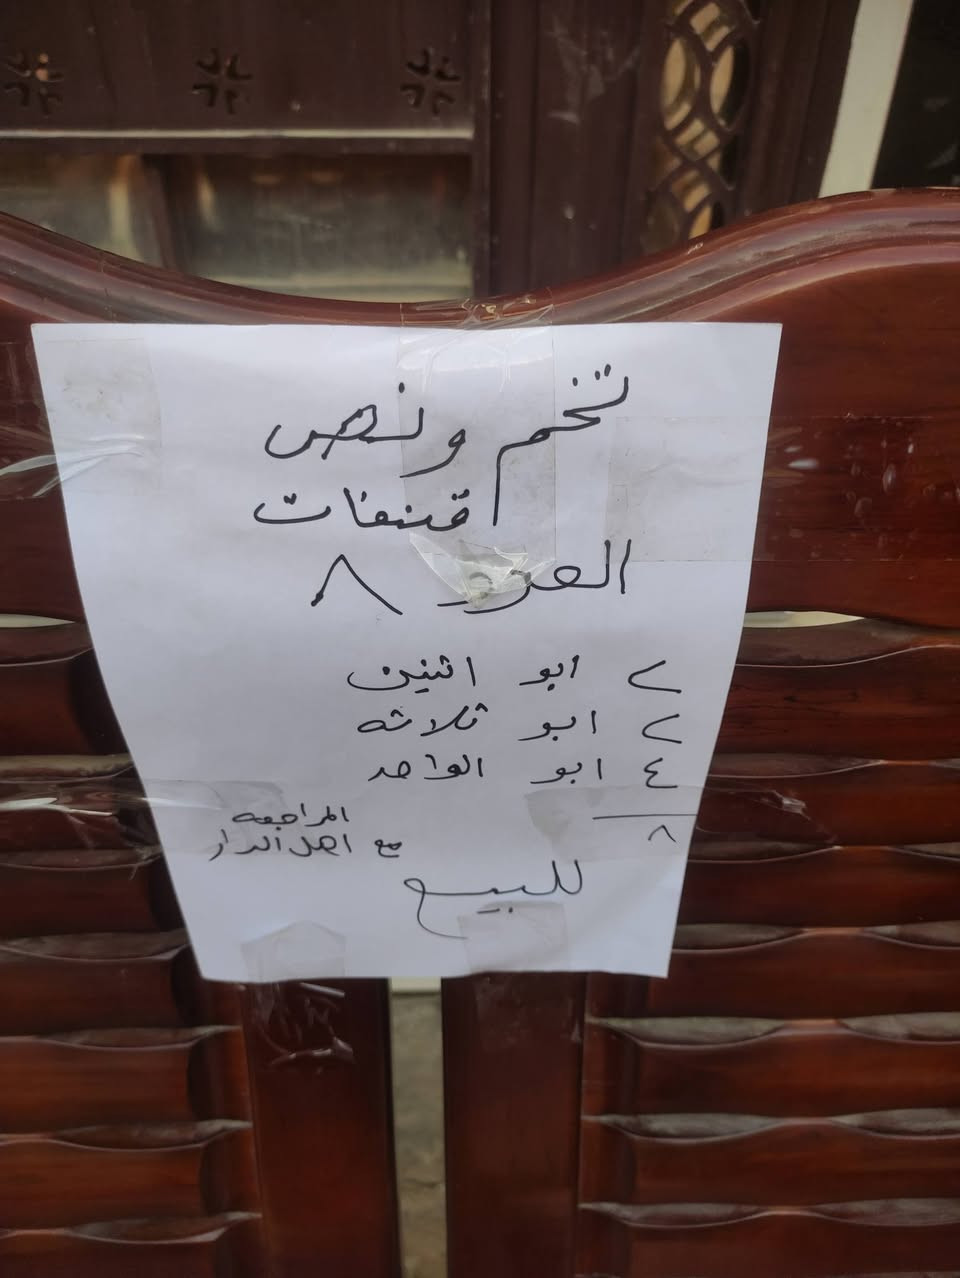 تخم ونص
قنفات
العدد ٨
٢ ابو اثنين
٢ ابو ثلاثه
٤ ابو الواحد
٨
المراجعه
مع اهل الدار
للبيع